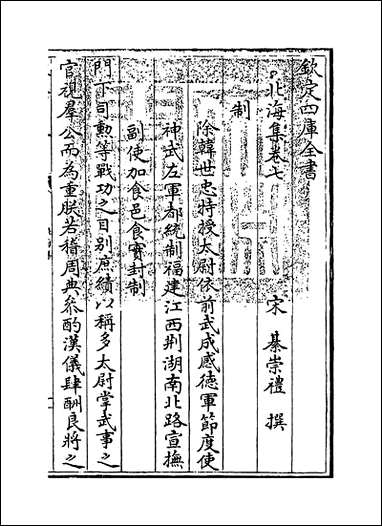 欽定四庫全書
北海集卷七
宋 綦崇禮 撰
制
除韓世忠特授太尉依前武成感德軍節度使
神武左軍都統制福建江西荆湖南北路宣撫
副使加食邑食實封制
門下司勲等戰功之目别庶績以稱多太尉掌武事之
官視羣公而為重朕若稽周典參酌漢儀肆酬良將之